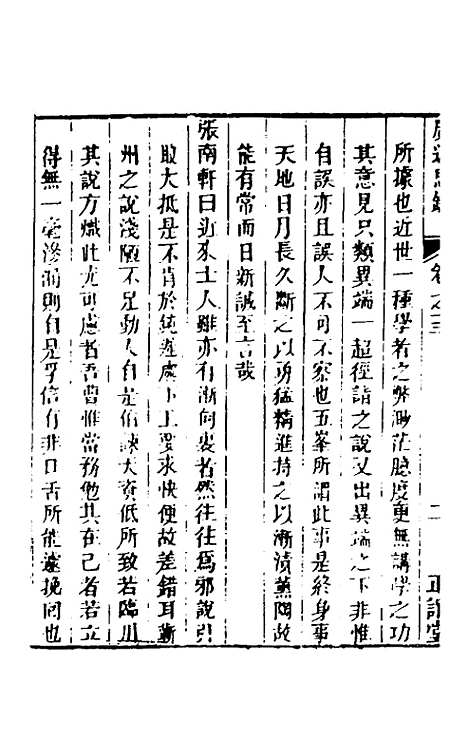 廣近思錄
卷之三
二
正誼堂
所據也近世一種學者之弊渺茫臆度更無講學之功
其意見只類異端一超徑詣之說又出異端之下非惟
自誤亦且誤人不可不察也五峯所謂此事是終身事
天地日月長久斷之以勇猛精進持之以漸漬薰陶故
能有常而日新誠至言哉
張南軒曰近來士人雖亦有漸向裏者然往往爲邪說引
取大抵是不肯於鈍遲處下工要求快便故差錯耳蘄
州之說淺陋不足動人自是伯諫天資低所致若臨川
其說方熾此尤可慮者吾曹惟當務勉其在己者若立
得無一毫滲漏則自是孚信有非口舌所能遽挽回也